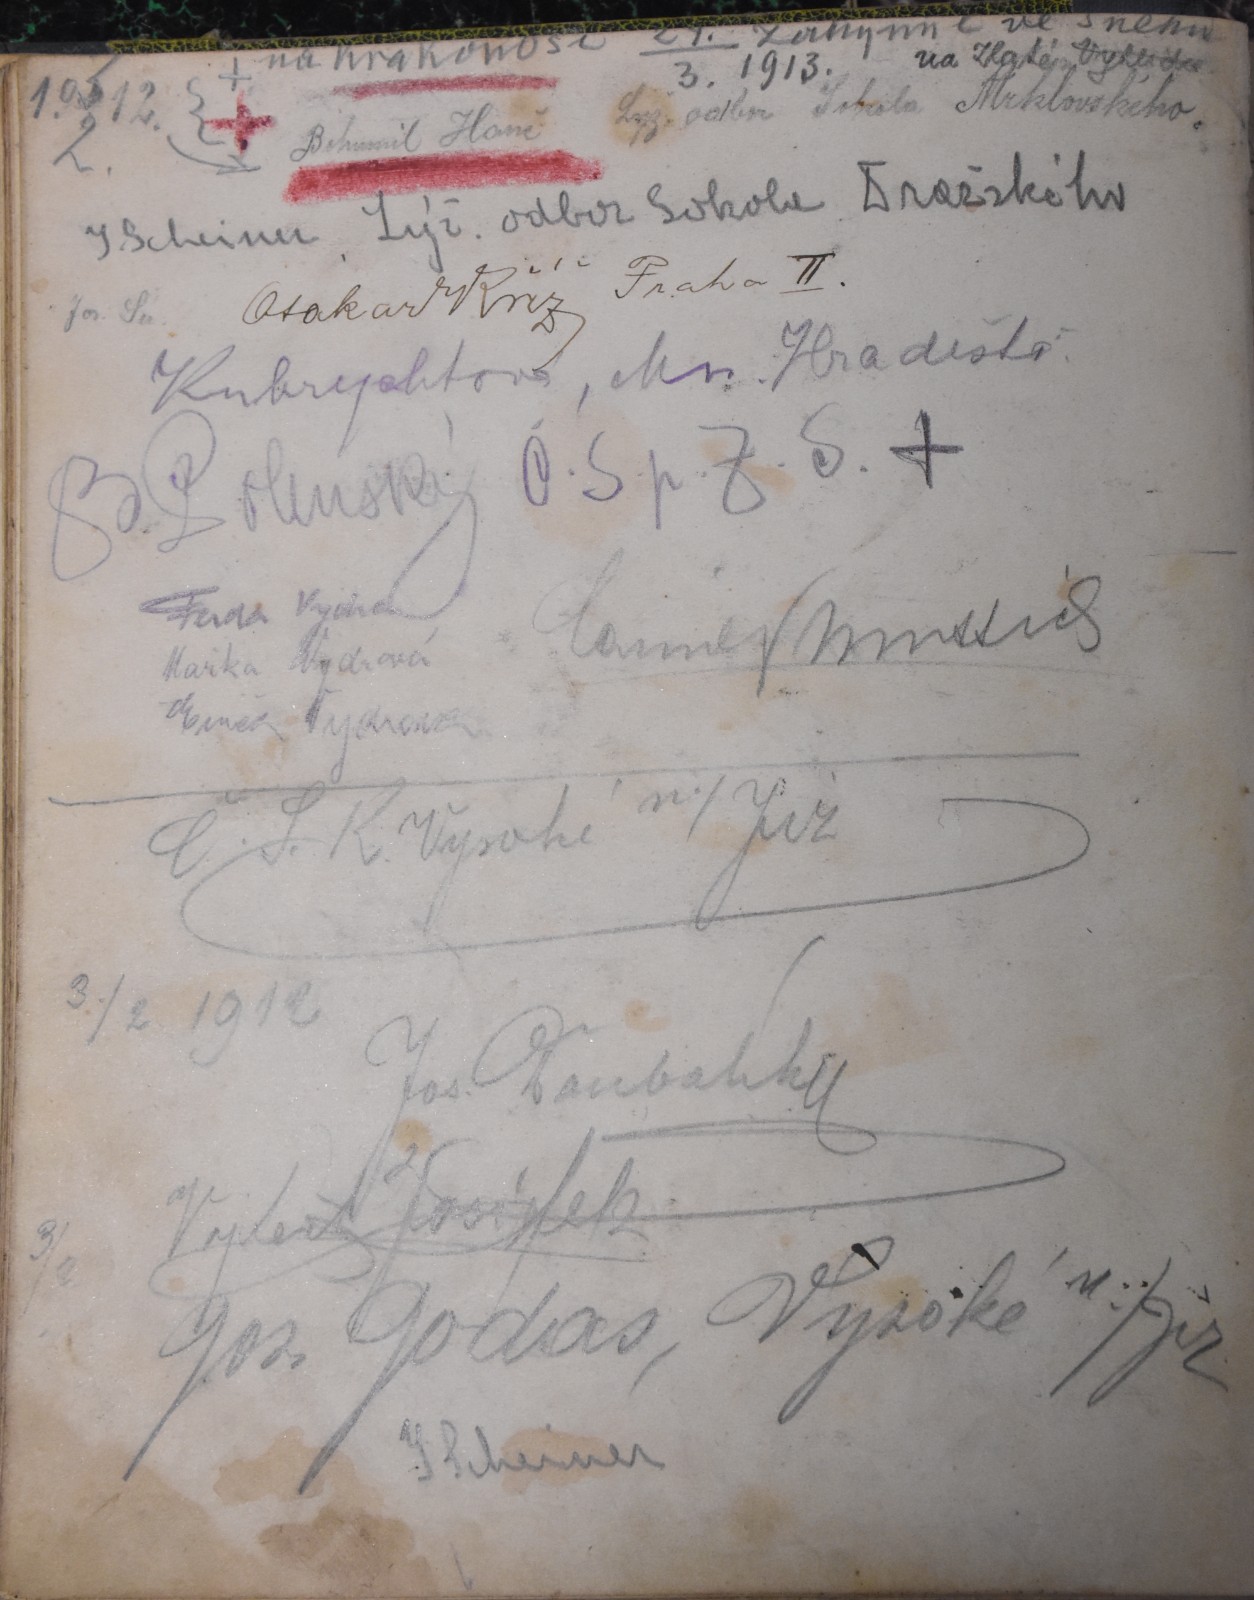 na Krakonoši 24. zahynul ve sněhu
3. 1913. na Zlatém
19 12. 2. + Bohumil Hanč Lyž. odbor Sokola Mrklovského.
J Scheiner Lyž. odbor Sokola Pražského
Otakar Kříž Praha II.
Jos.
Kubrychtová, Mn. Hradiště
B. Polenský Č. S p. Z. S. +
Ferda Vydra
Mařka Vydrová
Vydrová
Č. S. K. Vysoké n./Jiz
3./2 1912
Jos. Doubalík
3/2
Jos. Jodas, Vysoké n./Jiz
J Scheiner